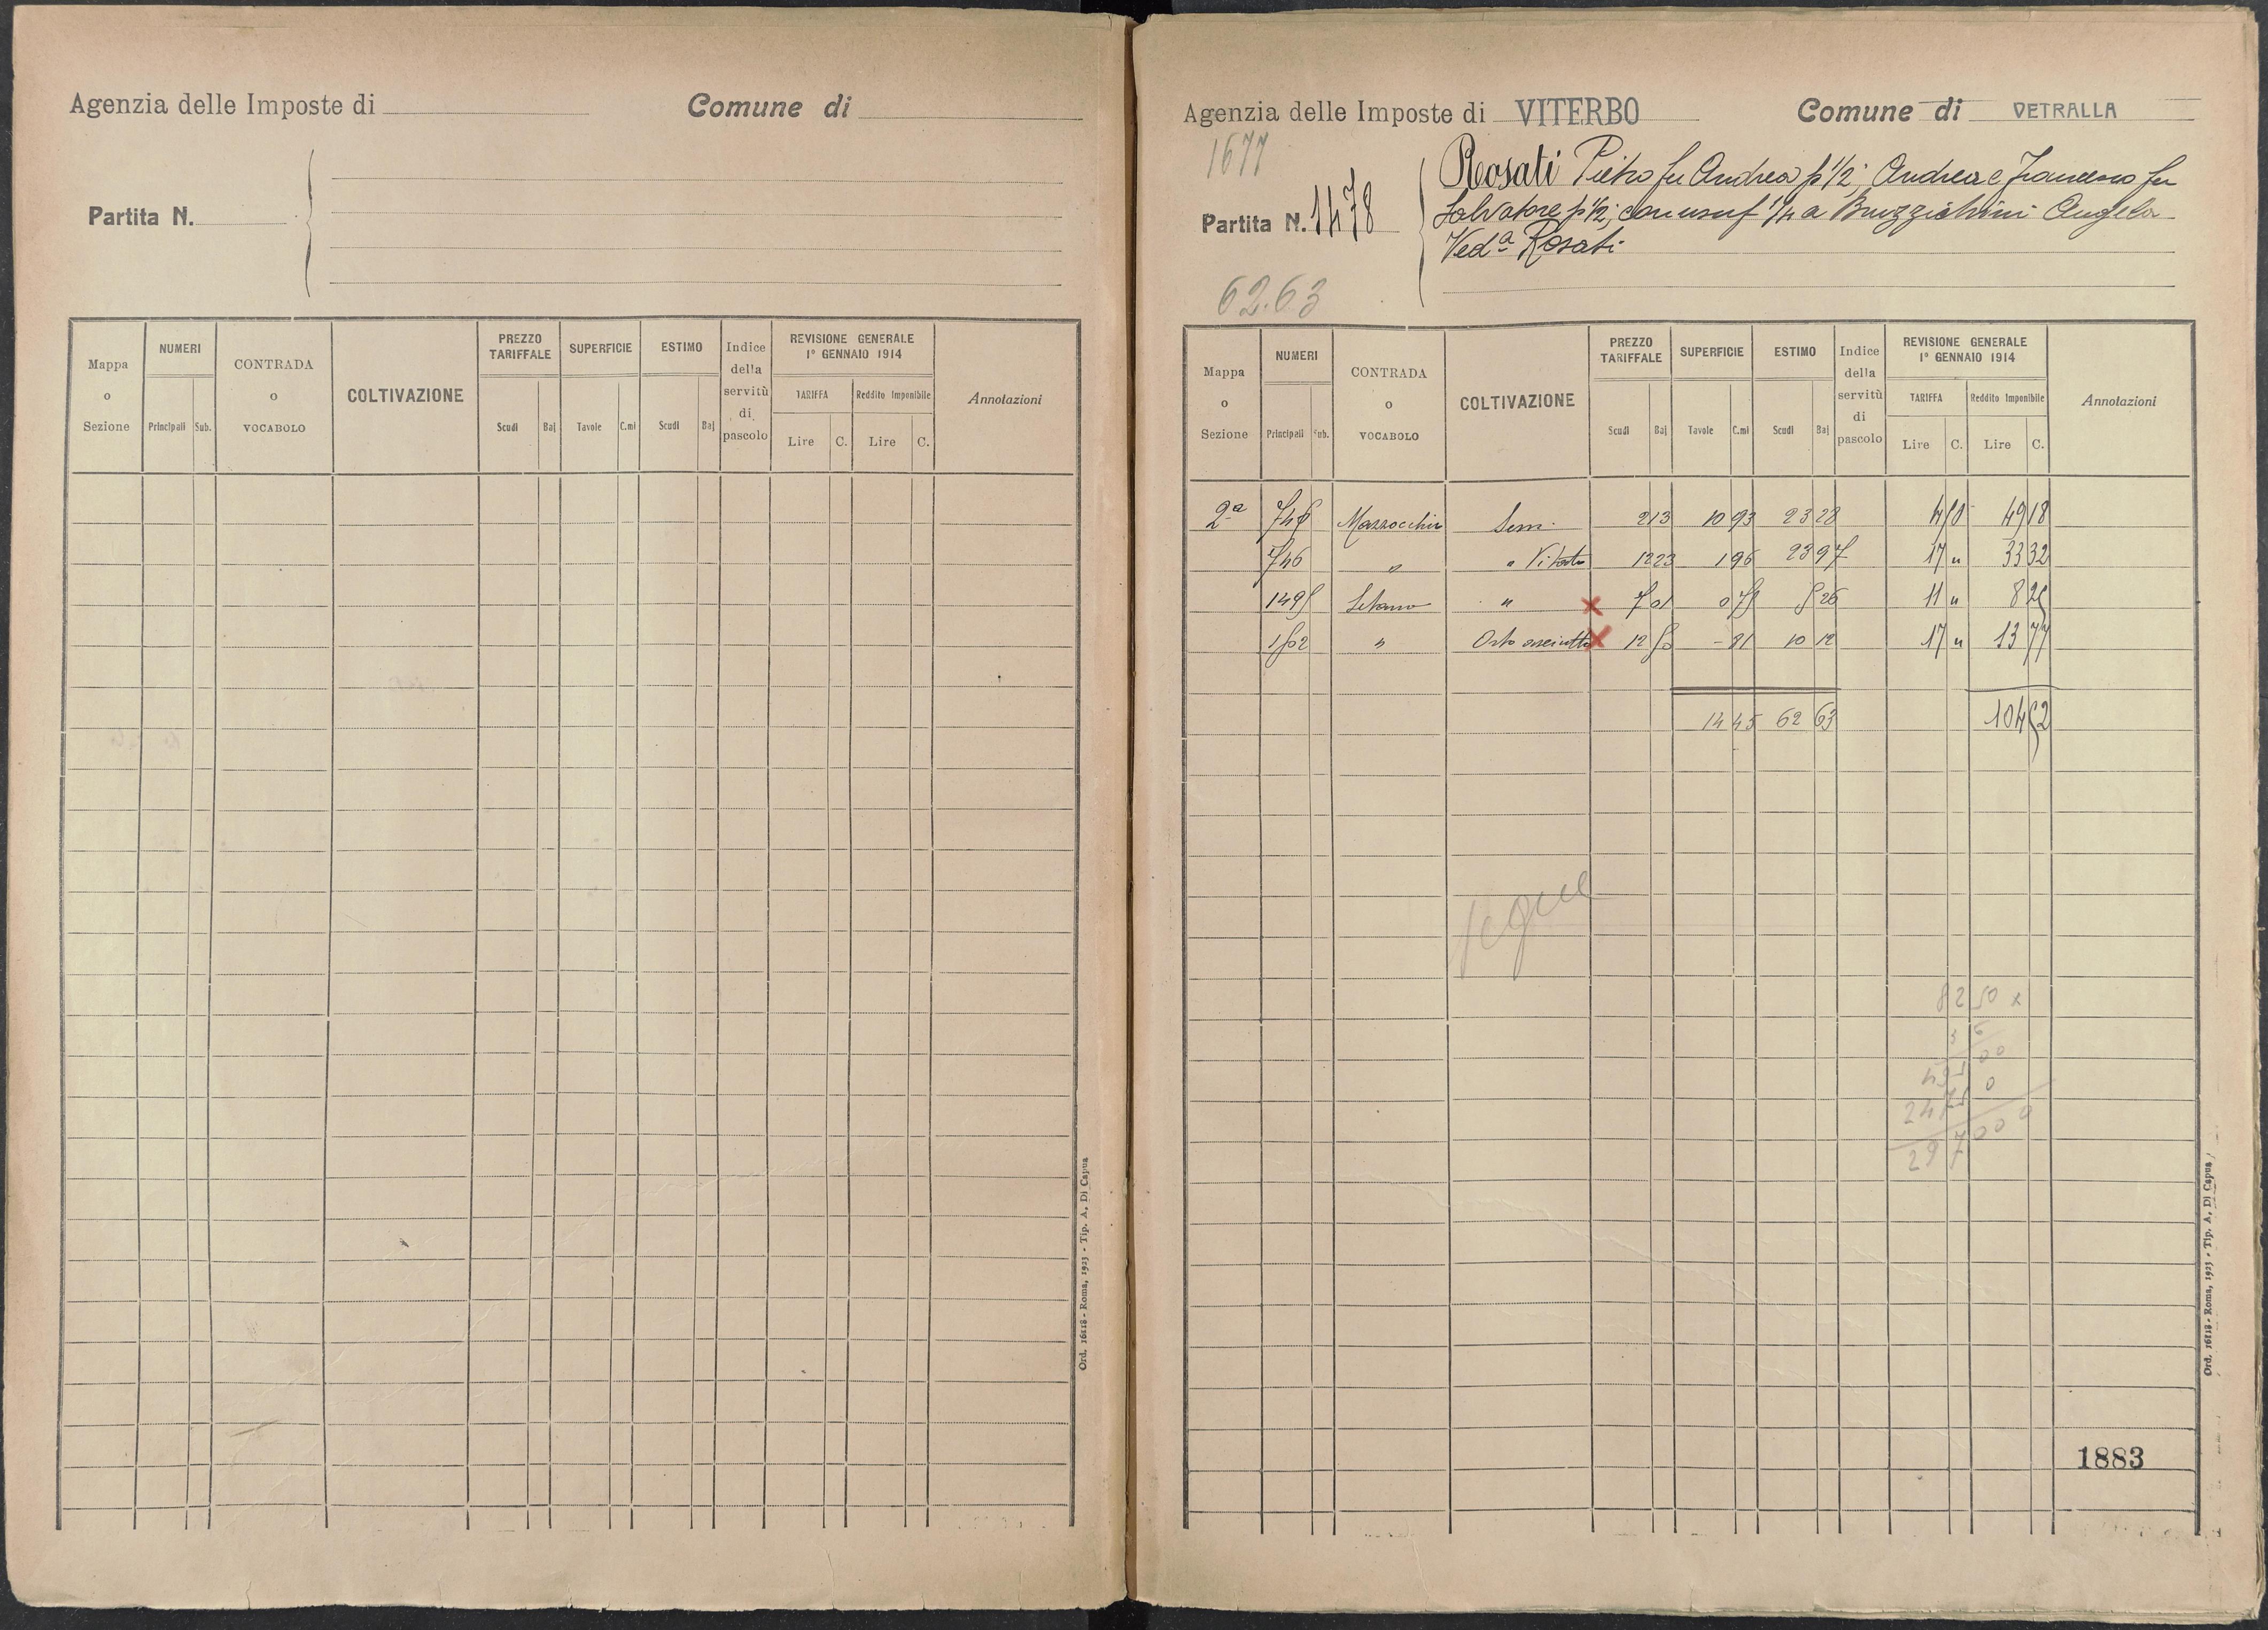 Agenzia delle Imposte di
Comune di
Partita N.
Mappa o Sezione
NUMERI
Principali Sub.
CONTRADA o VOCABOLO
COLTIVAZIONE
PREZZO TARIFFALE
Scudi Baj
SUPERFICIE
Tavole C.mi
ESTIMO
Scudi Baj
Indice della servitù di pascolo
REVISIONE GENERALE
1º GENNAIO 1914
TARIFFA Reddito Imponibile
Lire C. Lire C.
Annotazioni
Ord. 16118 - Roma, 1923 - Tip. A. Di Capua
Agenzia delle Imposte di VITERBO
Comune di VETRALLA
1677
Partita N. 1478
Rosati Pietro fu Andrea p 1/2; Andrea e Francesco fu
Salvatore p 1/2; con usuf 1/4 a Buzzichini Angela
Ved.a Rosati
62.63
Mappa o Sezione
NUMERI
Principali Sub.
CONTRADA o VOCABOLO
COLTIVAZIONE
PREZZO TARIFFALE
Scudi Baj
SUPERFICIE
Tavole C.mi
ESTIMO
Scudi Baj
Indice della servitù di pascolo
REVISIONE GENERALE
1º GENNAIO 1914
TARIFFA Reddito Imponibile
Lire C. Lire C.
Annotazioni
2a 745 Mazzocchio Sem. 2 13 10 93 23 28 4 50 49 18
746 " " Vitato 12 23 1 96 23 97 17 " 33 32
1495 " x 7 01 0 75 5 26 11 " 8 25
1502 " Orto asciutto x 12 50 - 81 10 12 17 " 13 77
14 45 62 63 104 52
segue
8250 x
36
49500
24750
297000
1883
Ord. 16118 - Roma, 1923 - Tip. A. Di Capua